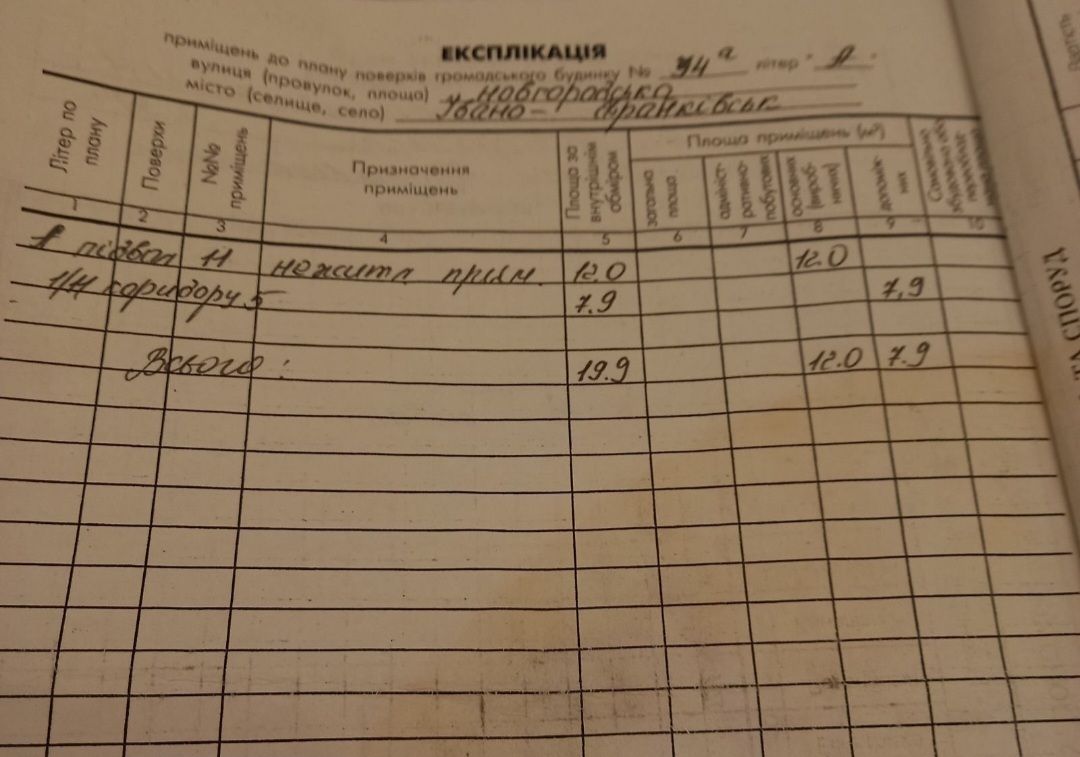 ЕКСПЛІКАЦІЯ
приміщень до плану поверхів громадського будинку № 94 а літер " А "
вулиця (провулок, площа) Новгородська
місто (селище, село) Івано-Франківськ
Літер по плану
Поверхи
№№ приміщень
Призначення приміщень
Площа за внутрішнім обміром
Площа приміщень (м²)
загальна площа
адмініст-ративно-побутових
основних (вироб-ничих)
допоміж-них
1 2 3 4 5 6 7 8 9 10
А підвал 11 нежитл. прим. 12.0 12.0
1/4 коридору 5 7.9 7,9
Всього: 19.9 12.0 7.9
ТА СПОРУД